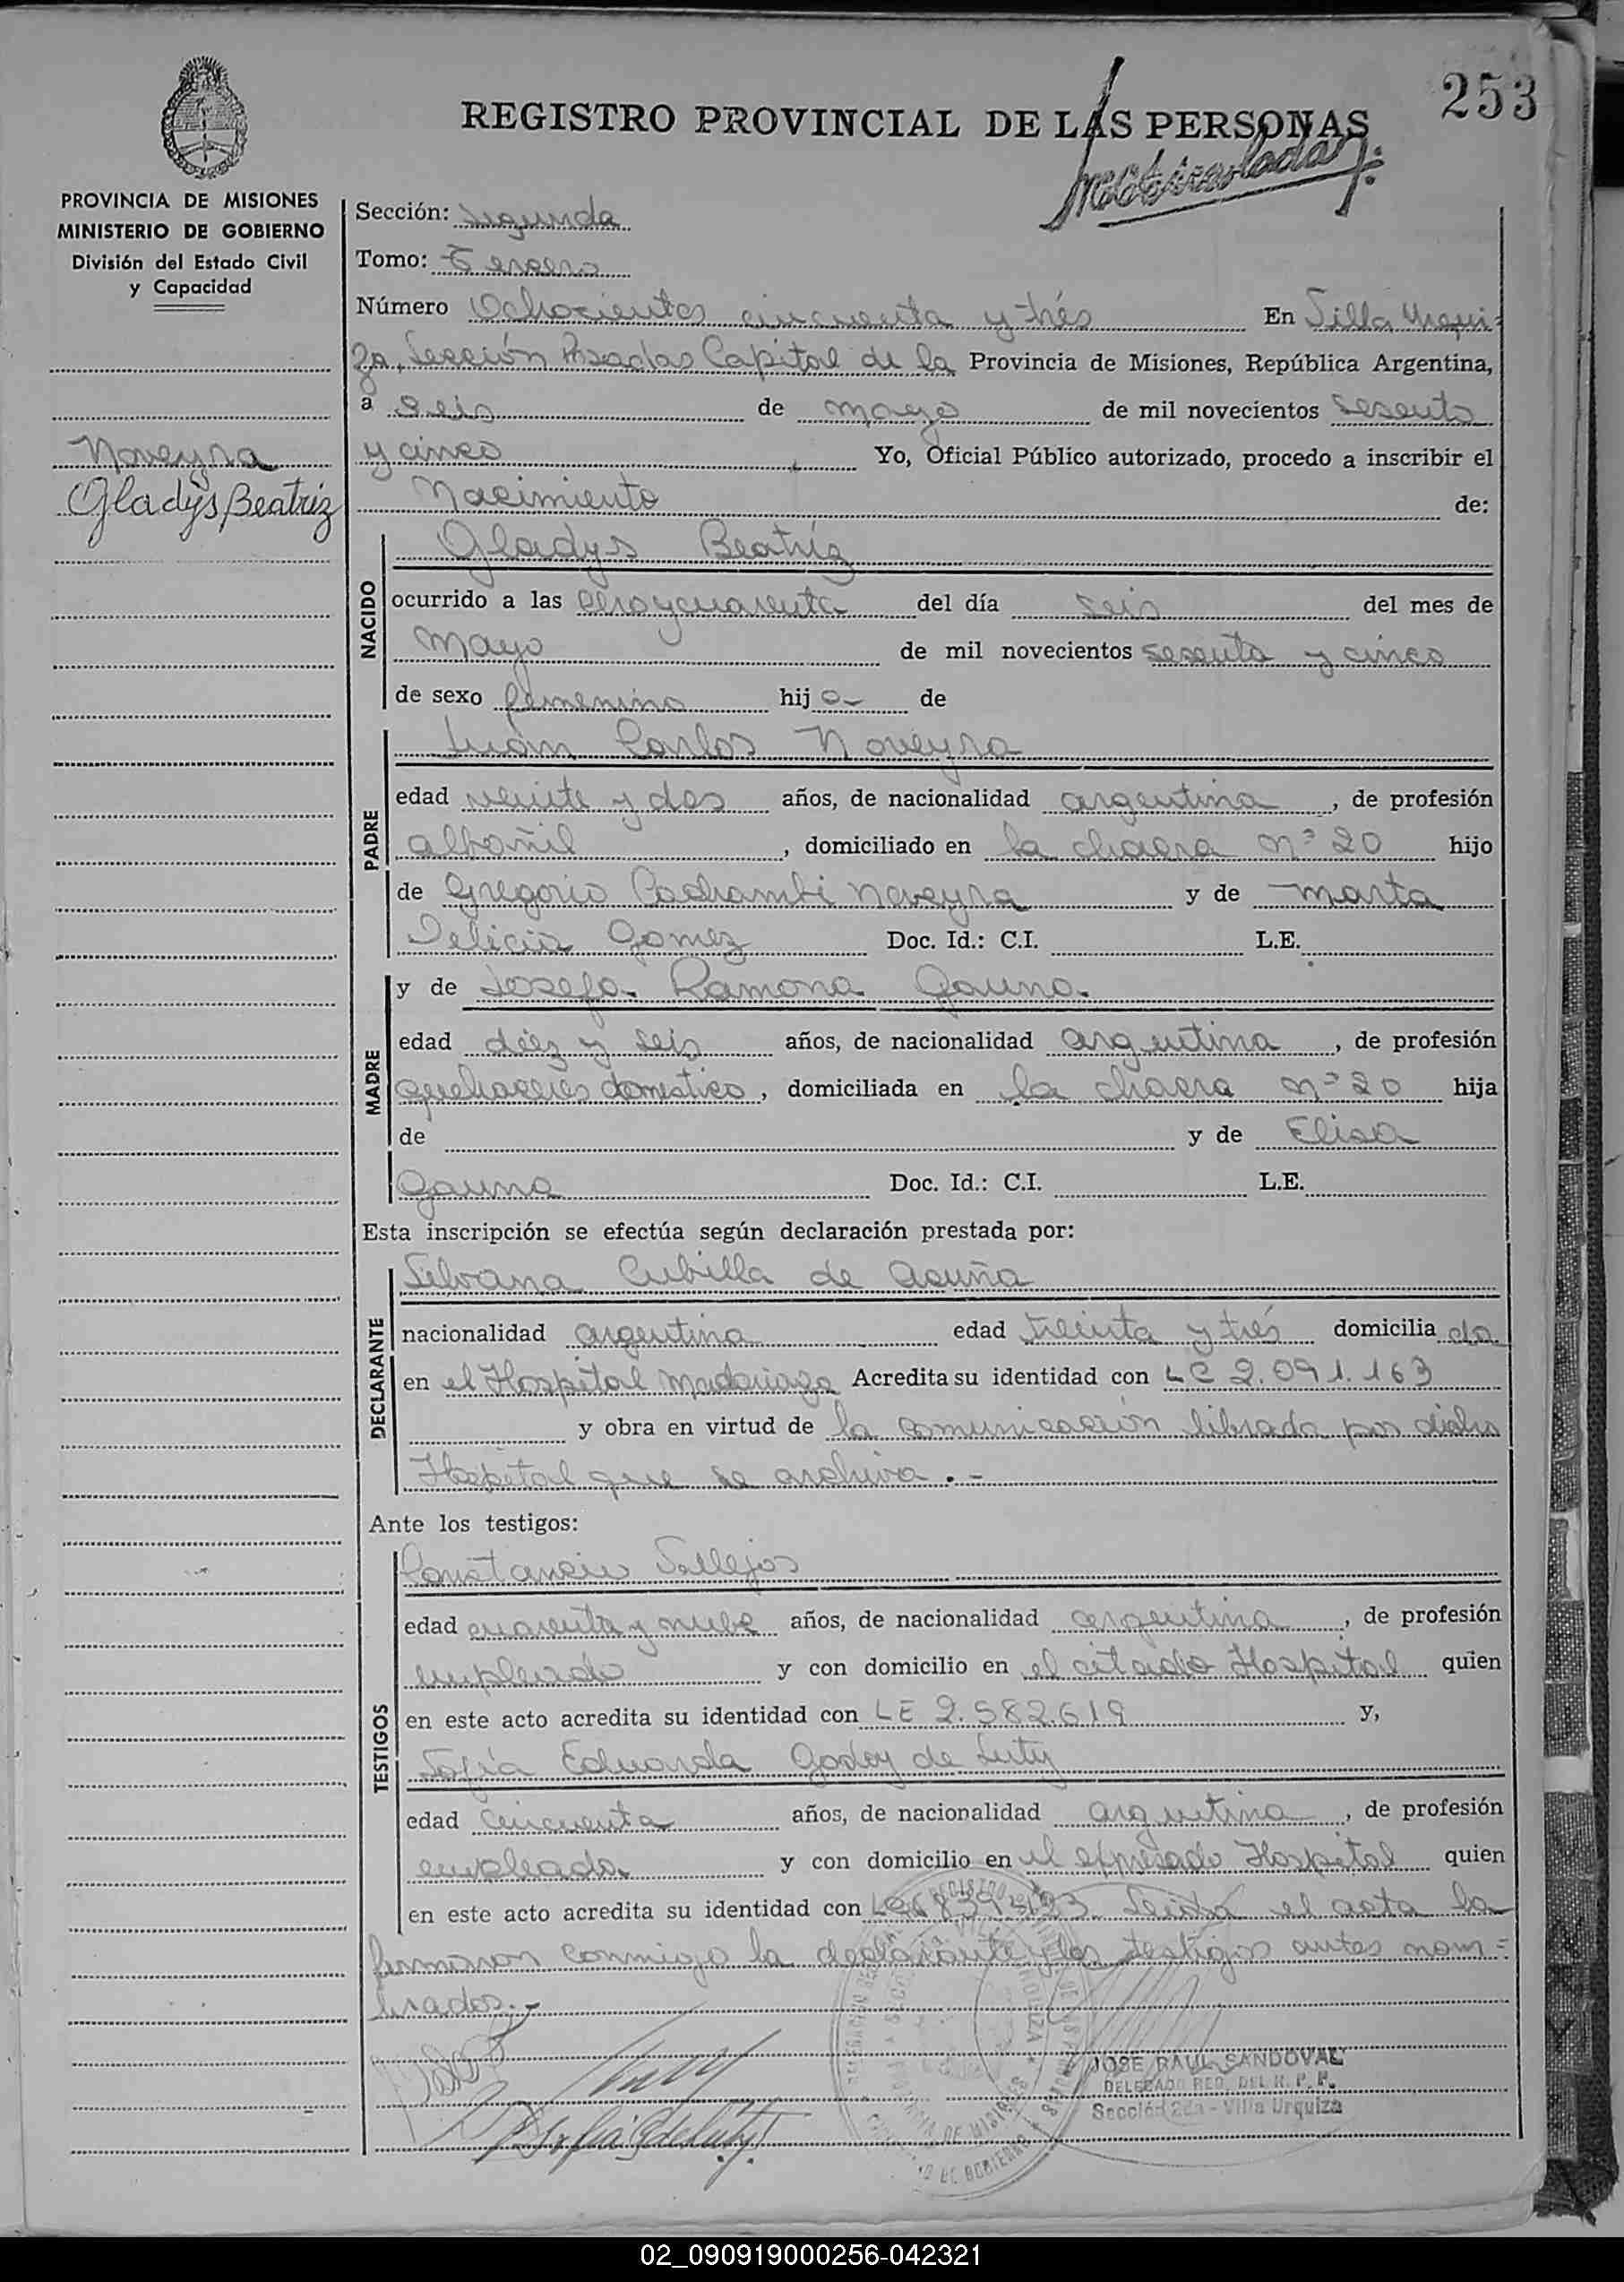 253
REGISTRO PROVINCIAL DE LAS PERSONAS
Matriculada
PROVINCIA DE MISIONES
MINISTERIO DE GOBIERNO
División del Estado Civil
y Capacidad
Noveyra
Gladys Beatriz
Sección: Segunda
Tomo: Tercero
Número Ochocientos cincuenta y trés En Villa Urqui=
za, Sección Posadas Capital de la Provincia de Misiones, República Argentina,
a seis de mayo de mil novecientos sesenta
y cinco Yo, Oficial Público autorizado, procedo a inscribir el
Nacimiento de:
NACIDO
Gladys Beatríz
ocurrido a las cero y cuarenta del día seis del mes de
Mayo de mil novecientos sesenta y cinco
de sexo femenino hij a- de
PADRE
Juan Carlos Noveyra
edad veinte y dos años, de nacionalidad argentina, de profesión
albañil, domiciliado en la chacra nº 20 hijo
de Gregorio Noveyra y de Marta
Delicia Gomez Doc. Id.: C.I. L.E.
MADRE
y de Josefa Ramona Gauna.
edad diéz y seis años, de nacionalidad argentina, de profesión
quehaceres domestico, domiciliada en la chacra nº 20 hija
de y de Elisa
Gauna Doc. Id.: C.I. L.E.
Esta inscripción se efectúa según declaración prestada por:
DECLARANTE
Silvana Cubilla de Acuña
nacionalidad argentina edad treinta y trés domicilia da
en el Hospital Madariaga Acredita su identidad con LC 2.091.163
y obra en virtud de la comunicación librada por dicho
Hospital que se archiva.-
Ante los testigos:
TESTIGOS
Constancio Vallejos
edad cuarenta y nueve años, de nacionalidad argentina, de profesión
empleado y con domicilio en el citado Hospital quien
en este acto acredita su identidad con LE 2.582.619 y,
Sofía Eduarda Godoy de Luty
edad cincuenta años, de nacionalidad argentina, de profesión
empleada y con domicilio en el expresado Hospital quien
en este acto acredita su identidad con Leida el acta la
firmaron conmigo la declarante y los testigos antes nom=
brados.-
Sofia G de Luty
JOSE RAUL SANDOVAL
DELEGADO REG. DEL R. P. P.
Sección 2da - Villa Urquiza
02_090919000256-042321